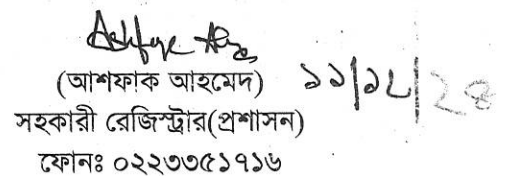 (আশফাক আহমেদ) ১১/১২/২৪
সহকারী রেজিস্ট্রার(প্রশাসন)
ফোনঃ ০২২৩৩৫১৭১৬